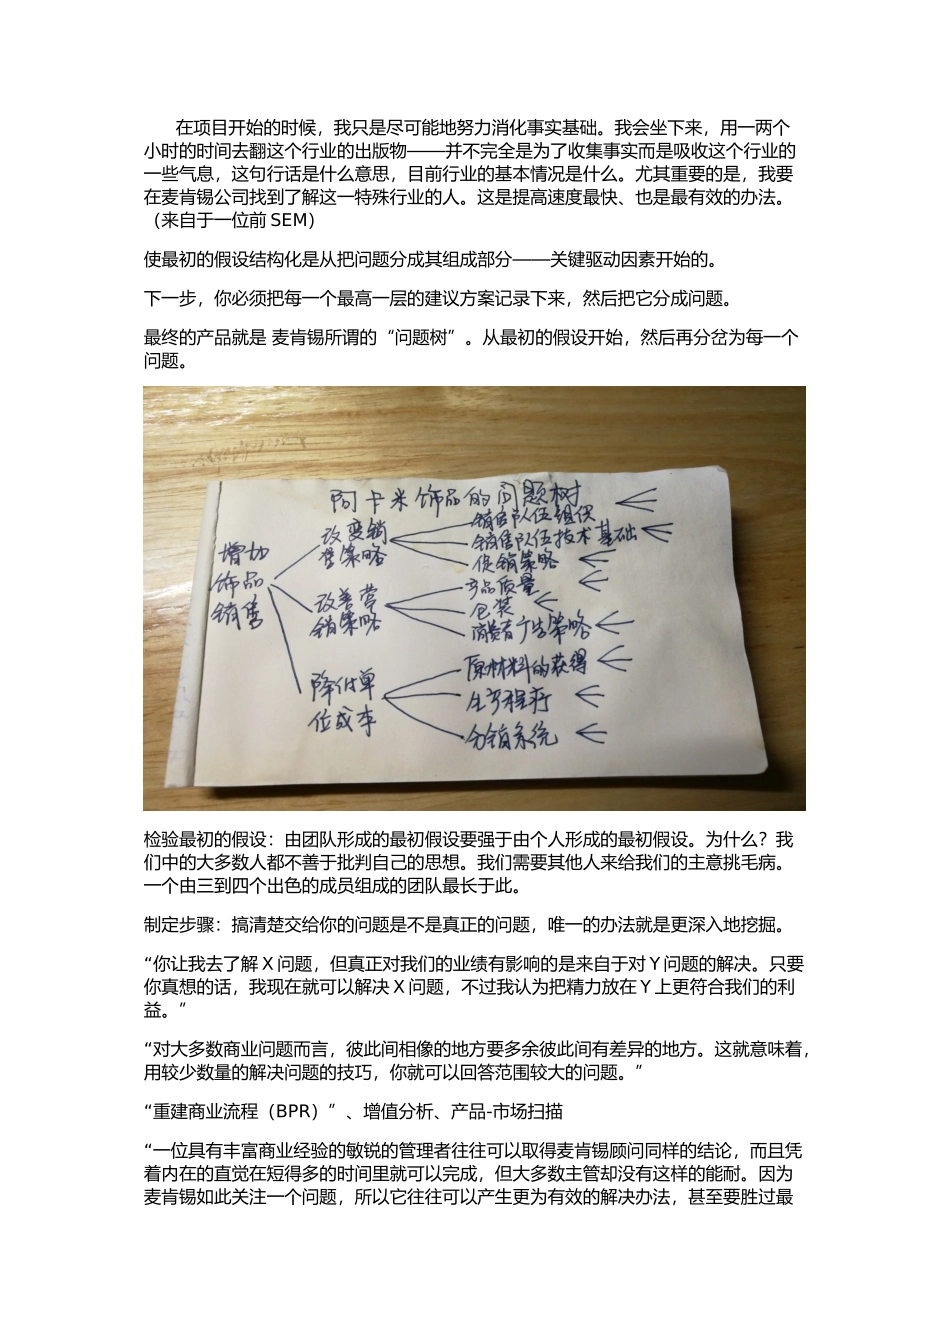 在项目开始的时候，我只是尽可能地努力消化事实基础。我会坐下来，用一两个
小时的时间去翻这个行业的出版物——并不完全是为了收集事实而是吸收这个行业的
一些气息，这句行话是什么意思，目前行业的基本情况是什么。尤其重要的是，我要
在麦肯锡公司找到了解这一特殊行业的人。这是提高速度最快、也是最有效的办法。
（来自于一位前 SEM）
使最初的假设结构化是从把问题分成其组成部分——关键驱动因素开始的。
下一步，你必须把每一个最高一层的建议方案记录下来，然后把它分成问题。
最终的产品就是 麦肯锡所谓的“问题树”。从最初的假设开始，然后再分岔为每一个
问题。
阿卡米饰品的问题树
增加
饰品
销售
改变销
售策略
销售队伍组织
销售队伍技术基础
促销策略
改善营
销策略
产品质量
包装
消费者广告策略
降低单
位成本
原材料的获得
生产程序
分销系统
检验最初的假设：由团队形成的最初假设要强于由个人形成的最初假设。为什么？我
们中的大多数人都不善于批判自己的思想。我们需要其他人来给我们的主意挑毛病。
一个由三到四个出色的成员组成的团队最长于此。
制定步骤：搞清楚交给你的问题是不是真正的问题，唯一的办法就是更深入地挖掘。
“你让我去了解 X 问题，但真正对我们的业绩有影响的是来自于对 Y 问题的解决。只要
你真想的话，我现在就可以解决 X 问题，不过我认为把精力放在 Y 上更符合我们的利
益。”
“对大多数商业问题而言，彼此间相像的地方要多余彼此间有差异的地方。这就意味着，
用较少数量的解决问题的技巧，你就可以回答范围较大的问题。”
“重建商业流程（BPR）”、增值分析、产品-市场扫描
“一位具有丰富商业经验的敏锐的管理者往往可以取得麦肯锡顾问同样的结论，而且凭
着内在的直觉在短得多的时间里就可以完成，但大多数主管却没有这样的能耐。因为
麦肯锡如此关注一个问题，所以它往往可以产生更为有效的解决办法，甚至要胜过最